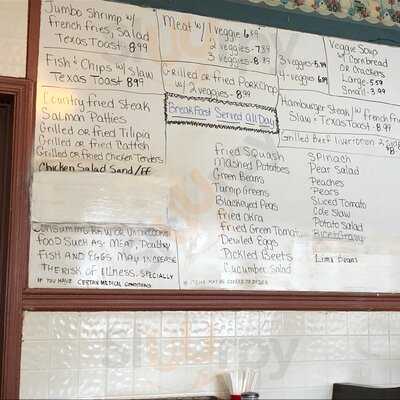 Jumbo Shrimp w/
french fries, Salad
Texas Toast 8.99
Fish & Chips w/ Slaw
Texas Toast 8.99
Country fried Steak
Salmon Patties
Grilled or fried Tilipia
Grilled or fried Catfish
Grilled or fried Chicken Tenders
Chicken Salad Sand/FF
Consuming Raw or undercooked
food such as: Meat, Poultry
Fish and Eggs may increase
the risk of illness, specially
if you have certain medical conditions
Meat w/ 1 Veggie 6.59
2 veggies - 7.39
3 veggies - 8.79
Grilled or fried Pork Chop
w/ 2 veggies - 8.99
Breakfast Served All Day
3 Veggies - 5.99
4 - veggies 6.99
Veggie Soup
w/ Cornbread
Or Crackers
Large - 5.59
Small - 3.99
Hamburger Steak w/ french f
Slaw + Texas Toast - 8.
Grilled Beef Liver/onion 2 sid
fried Squash
Mashed Potatoes
Green Beans
Turnip Greens
Blackeyed Peas
fried okra
fried Green Tomato
Deviled Eggs
Pickled Beets
Cucumber Salad
Spinach
Pear Salad
Peaches
Pears
Sliced Tomato
Cole Slaw
Potato Salad
Rice + Gravy
Lima Beans
* Items may be cooked to order